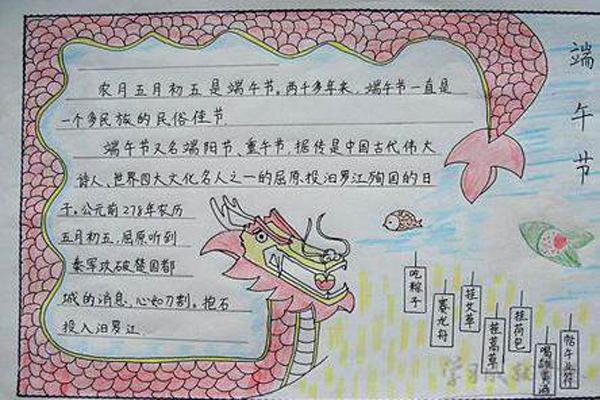 端午节
农月五月初五是端午节。两千多年来，端午节一直是
一个多民族的民俗佳节.
端午节又名端阳节、重午节，据传是中国古代伟大
诗人、世界四大文化名人之一的屈原，投汨罗江殉国的日
子。公元前278年农历
五月初五，屈原听到
秦军攻破楚国都
城的消息，心如刀割。抱石
投入汨罗江.
吃粽子
赛龙舟
挂艾草
挂菖草
挂荷包
喝雄黄酒
帖午业符